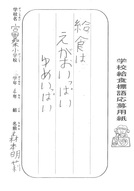 学校給食標語応募用紙
給食は
えがおいっぱい
ゆめいっぱい
学校名
小学校
学年
年
組
名前